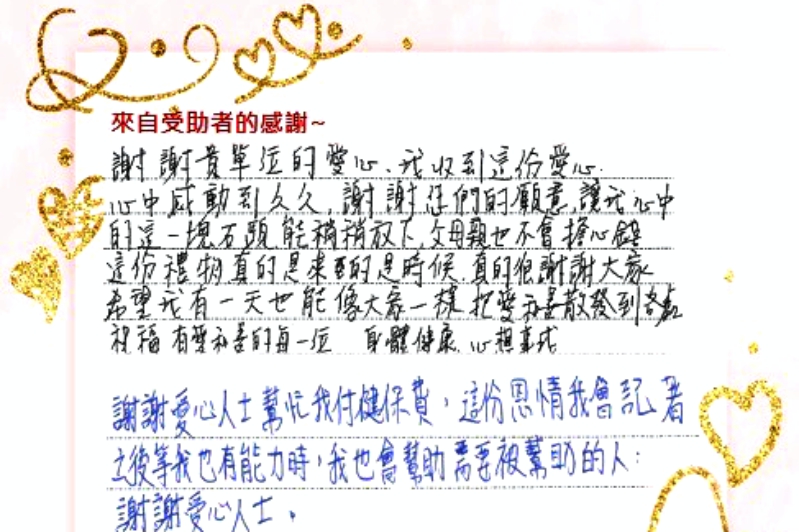 來自受助者的感謝~
謝謝貴單位的愛心、我收到這份愛心.
心中感動到久久,謝謝您們的願意,讓我心中
的這一塊石頭能稍稍放下,父母親也不會擔心錢
這份禮物真的是來的是時候,真的很謝謝大家
希望我有一天也能像大家一樣把愛和善散發到各處
祝福有愛和善的每一位 身體健康,心想事成
謝謝愛心人士幫忙我付健保費，這份恩情我會記著
之後等我也有能力時，我也會幫助需要被幫助的人:
謝謝愛心人士。